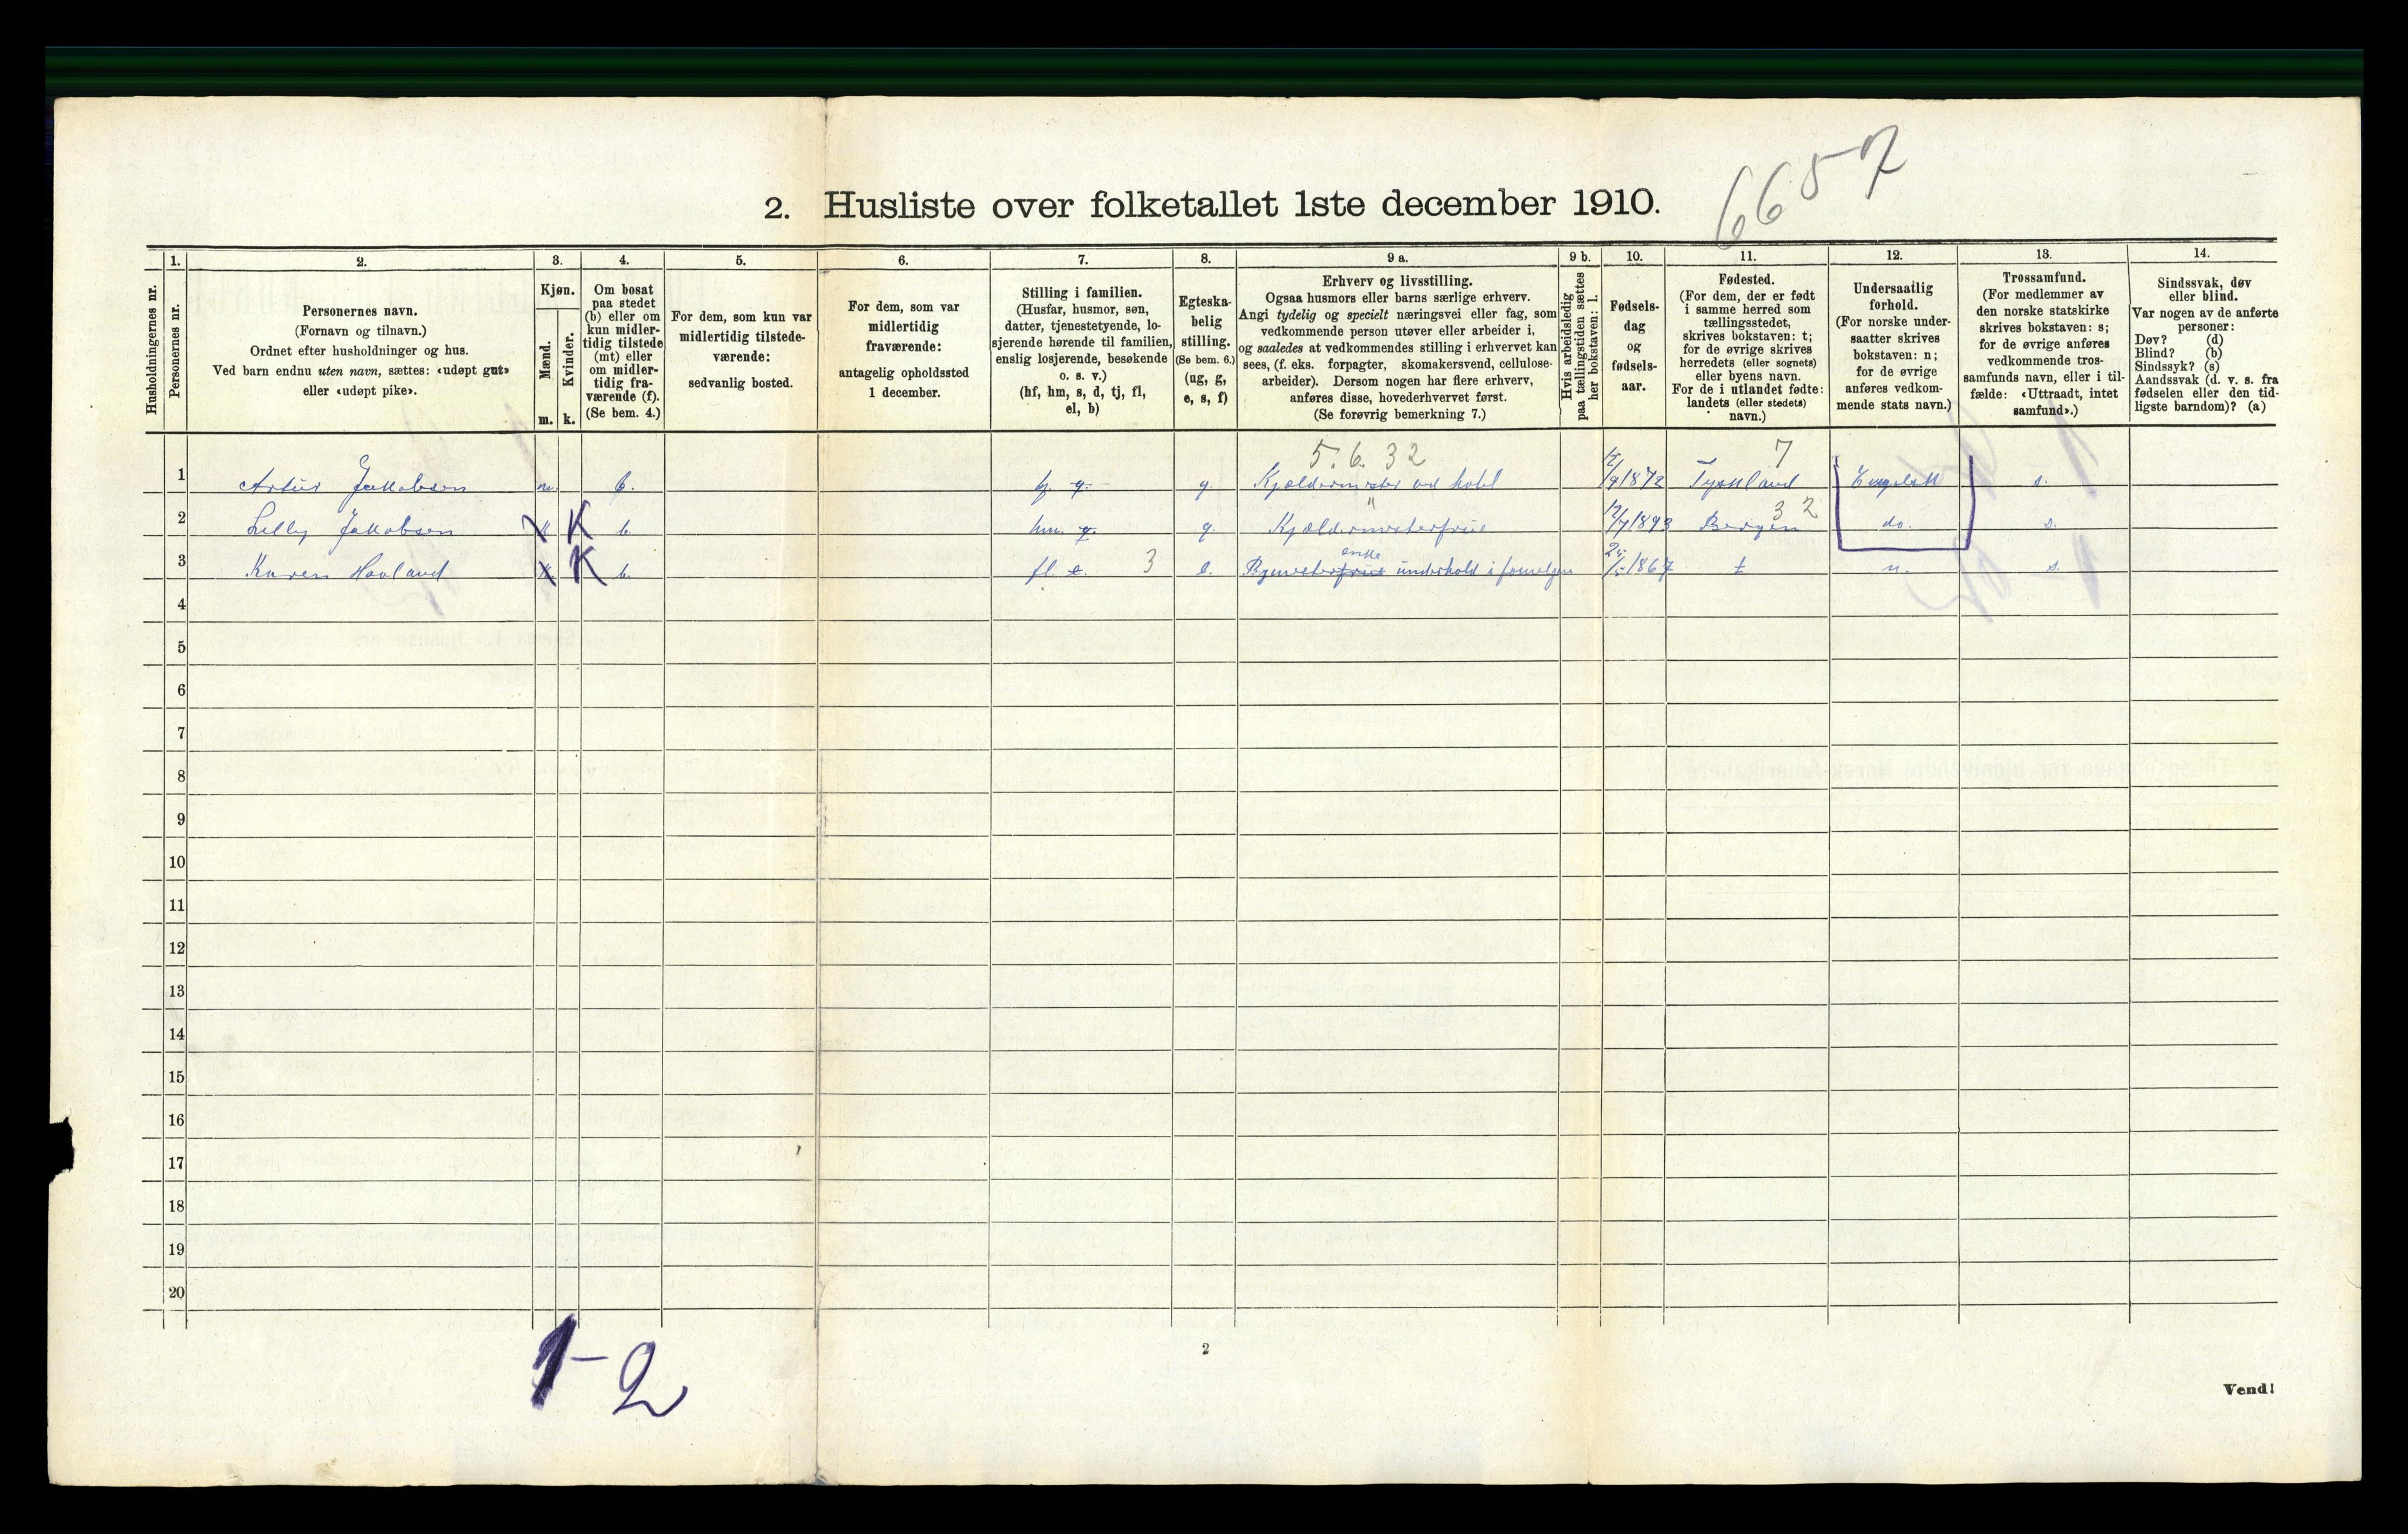 6657
2. Husliste over folketallet 1ste december 1910.
Husholdningernes nr.
1.
Personernes nr.
2.
Personernes navn.
(Fornavn og tilnavn.)
Ordnet efter husholdninger og hus.
Ved barn endnu uten navn, sættes: «udøpt gut»
eller «udøpt pike».
3.
Kjøn.
Mænd.
Kvinder.
m. k.
4.
Om bosat
paa stedet
(b) eller om
kun midler-
tidig tilstede
(mt) eller
om midler-
tidig fra-
værende (f).
(Se bem. 4.)
5.
For dem, som kun var
midlertidig tilstede-
værende:
sedvanlig bosted.
6.
For dem, som var
midlertidig
fraværende:
antagelig opholdssted
1 december.
7.
Stilling i familien.
(Husfar, husmor, søn,
datter, tjenestetyende, lo-
sjerende hørende til familien,
enslig losjerende, besøkende
o. s. v.)
(hf, hm, s, d, tj, fl,
el, b)
8.
Egteska-
belig
stilling.
(Se bem. 6.)
(ug, g,
e, s, f)
9 a.
Erhverv og livsstilling.
Ogsaa husmors eller barns særlige erhverv.
Angi tydelig og specielt næringsvei eller fag, som
vedkommende person utøver eller arbeider i,
og saaledes at vedkommendes stilling i erhvervet kan
sees, (f. eks. forpagter, skomakersvend, cellulose-
arbeider). Dersom nogen har flere erhverv,
anføres disse, hovederhvervet først.
(Se forøvrig bemerkning 7.)
9 b.
Hvis arbeidsledig
paa tællingstiden sættes
her bokstaven: l.
10.
Fødsels-
dag
og
fødsels-
aar.
11.
Fødested.
(For dem, der er født
i samme herred som
tællingsstedet,
skrives bokstaven: t;
for de øvrige skrives
herredets (eller sognets)
eller byens navn.
For de i utlandet fødte:
landets (eller stedets)
navn.)
12.
Undersaatlig
forhold.
(For norske under-
saatter skrives
bokstaven: n;
for de øvrige
anføres vedkom-
mende stats navn.)
13.
Trossamfund.
(For medlemmer av
den norske statskirke
skrives bokstaven: s;
for de øvrige anføres
vedkommende tros-
samfunds navn, eller i til-
fælde: «Uttraadt, intet
samfund».)
14.
Sindssvak, døv
eller blind.
Var nogen av de anførte
personer:
Døv? (d)
Blind? (b)
Sindssyk? (s)
Aandssvak (d. v. s. fra
fødselen eller den tid-
ligste barndom)? (a)
5.6.32 7
1 Artur Jakobsen m. b. g. Kjældermester ved hotel 1872 Tyskland Engelsk s.
" 32
2 Lilly Jakobsen K b. hm. g. g. Kjældermesterfrue 1893 Bergen do. s.
enke
3 Karen Havland K b. fl. e. 3 e. underhold i 1867 t n. s.
4
5
6
7
8
9
10
11
12
13
14
15
16
17
18
19
20
1-2
2
Vend!